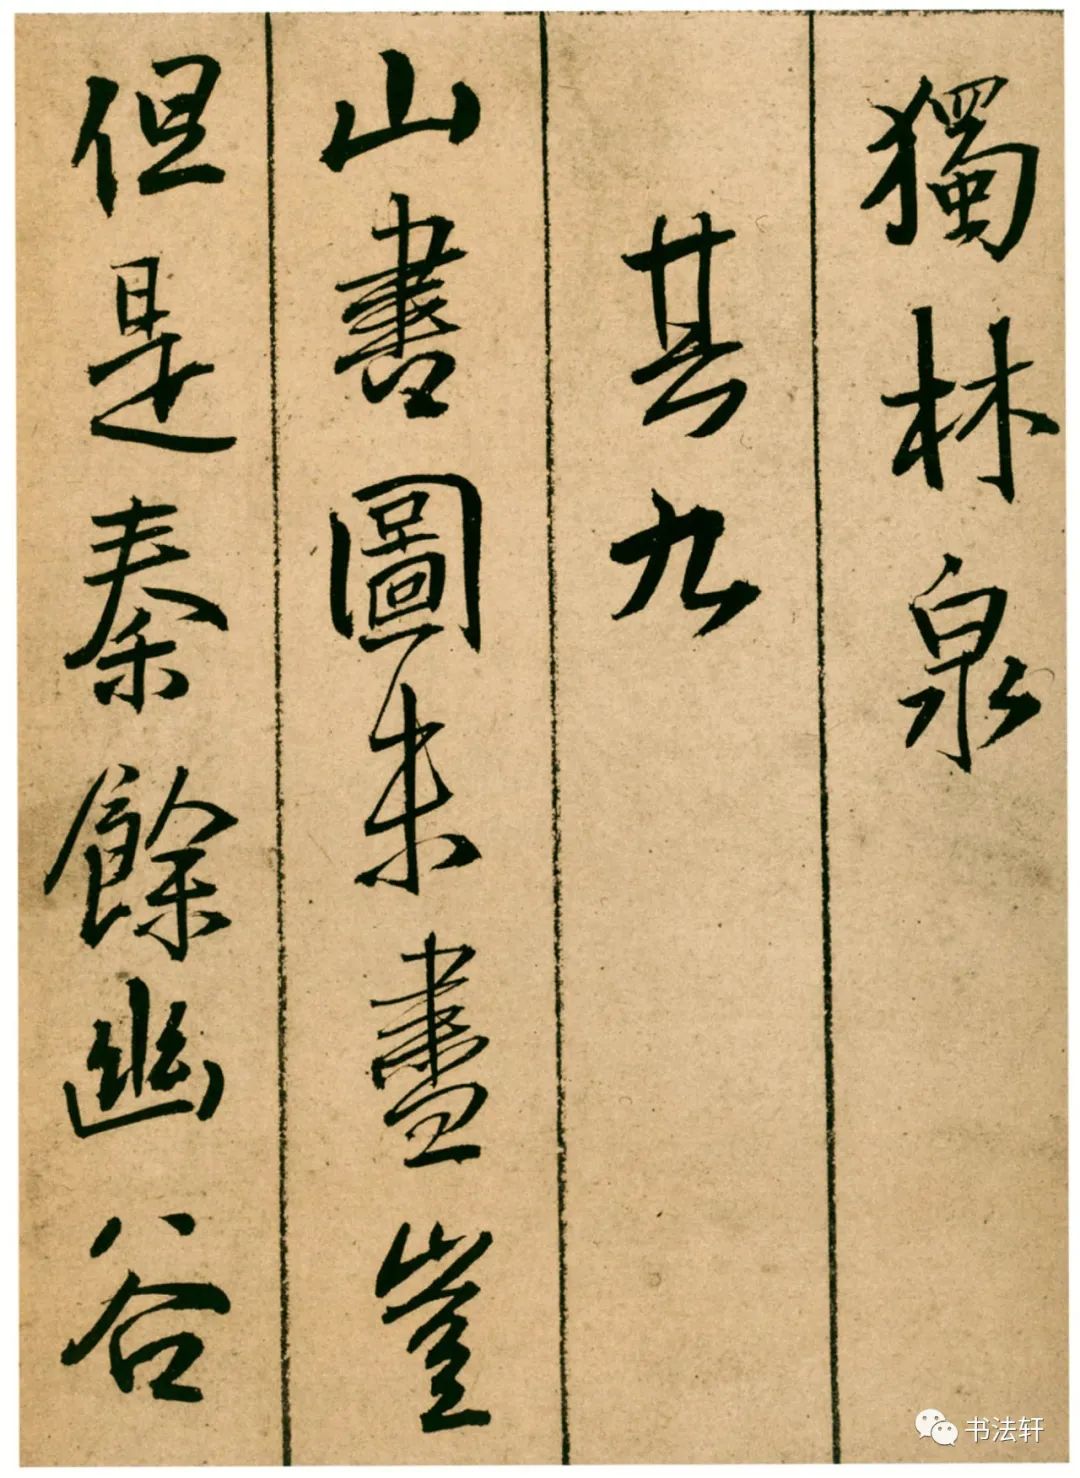 獨林泉
其九
山書圖未盡豈
但是秦餘幽谷
书法轩